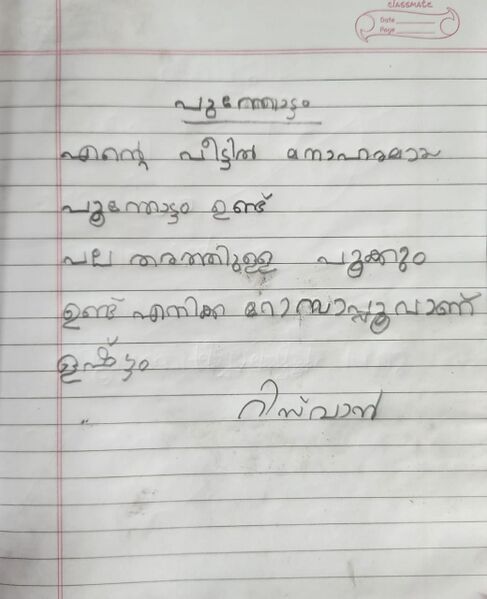 classmate
Date
Page
പൂന്തോട്ടം
എന്റെ വീട്ടിൽ മനോഹരമായ
പൂന്തോട്ടം ഉണ്ട്
പല തരത്തിലുള്ള പൂക്കളും
ഉണ്ട് എനിക്ക റോസാപ്പൂവാണ്
ഇഷ്ട്ടം
റിസ്വാൻ